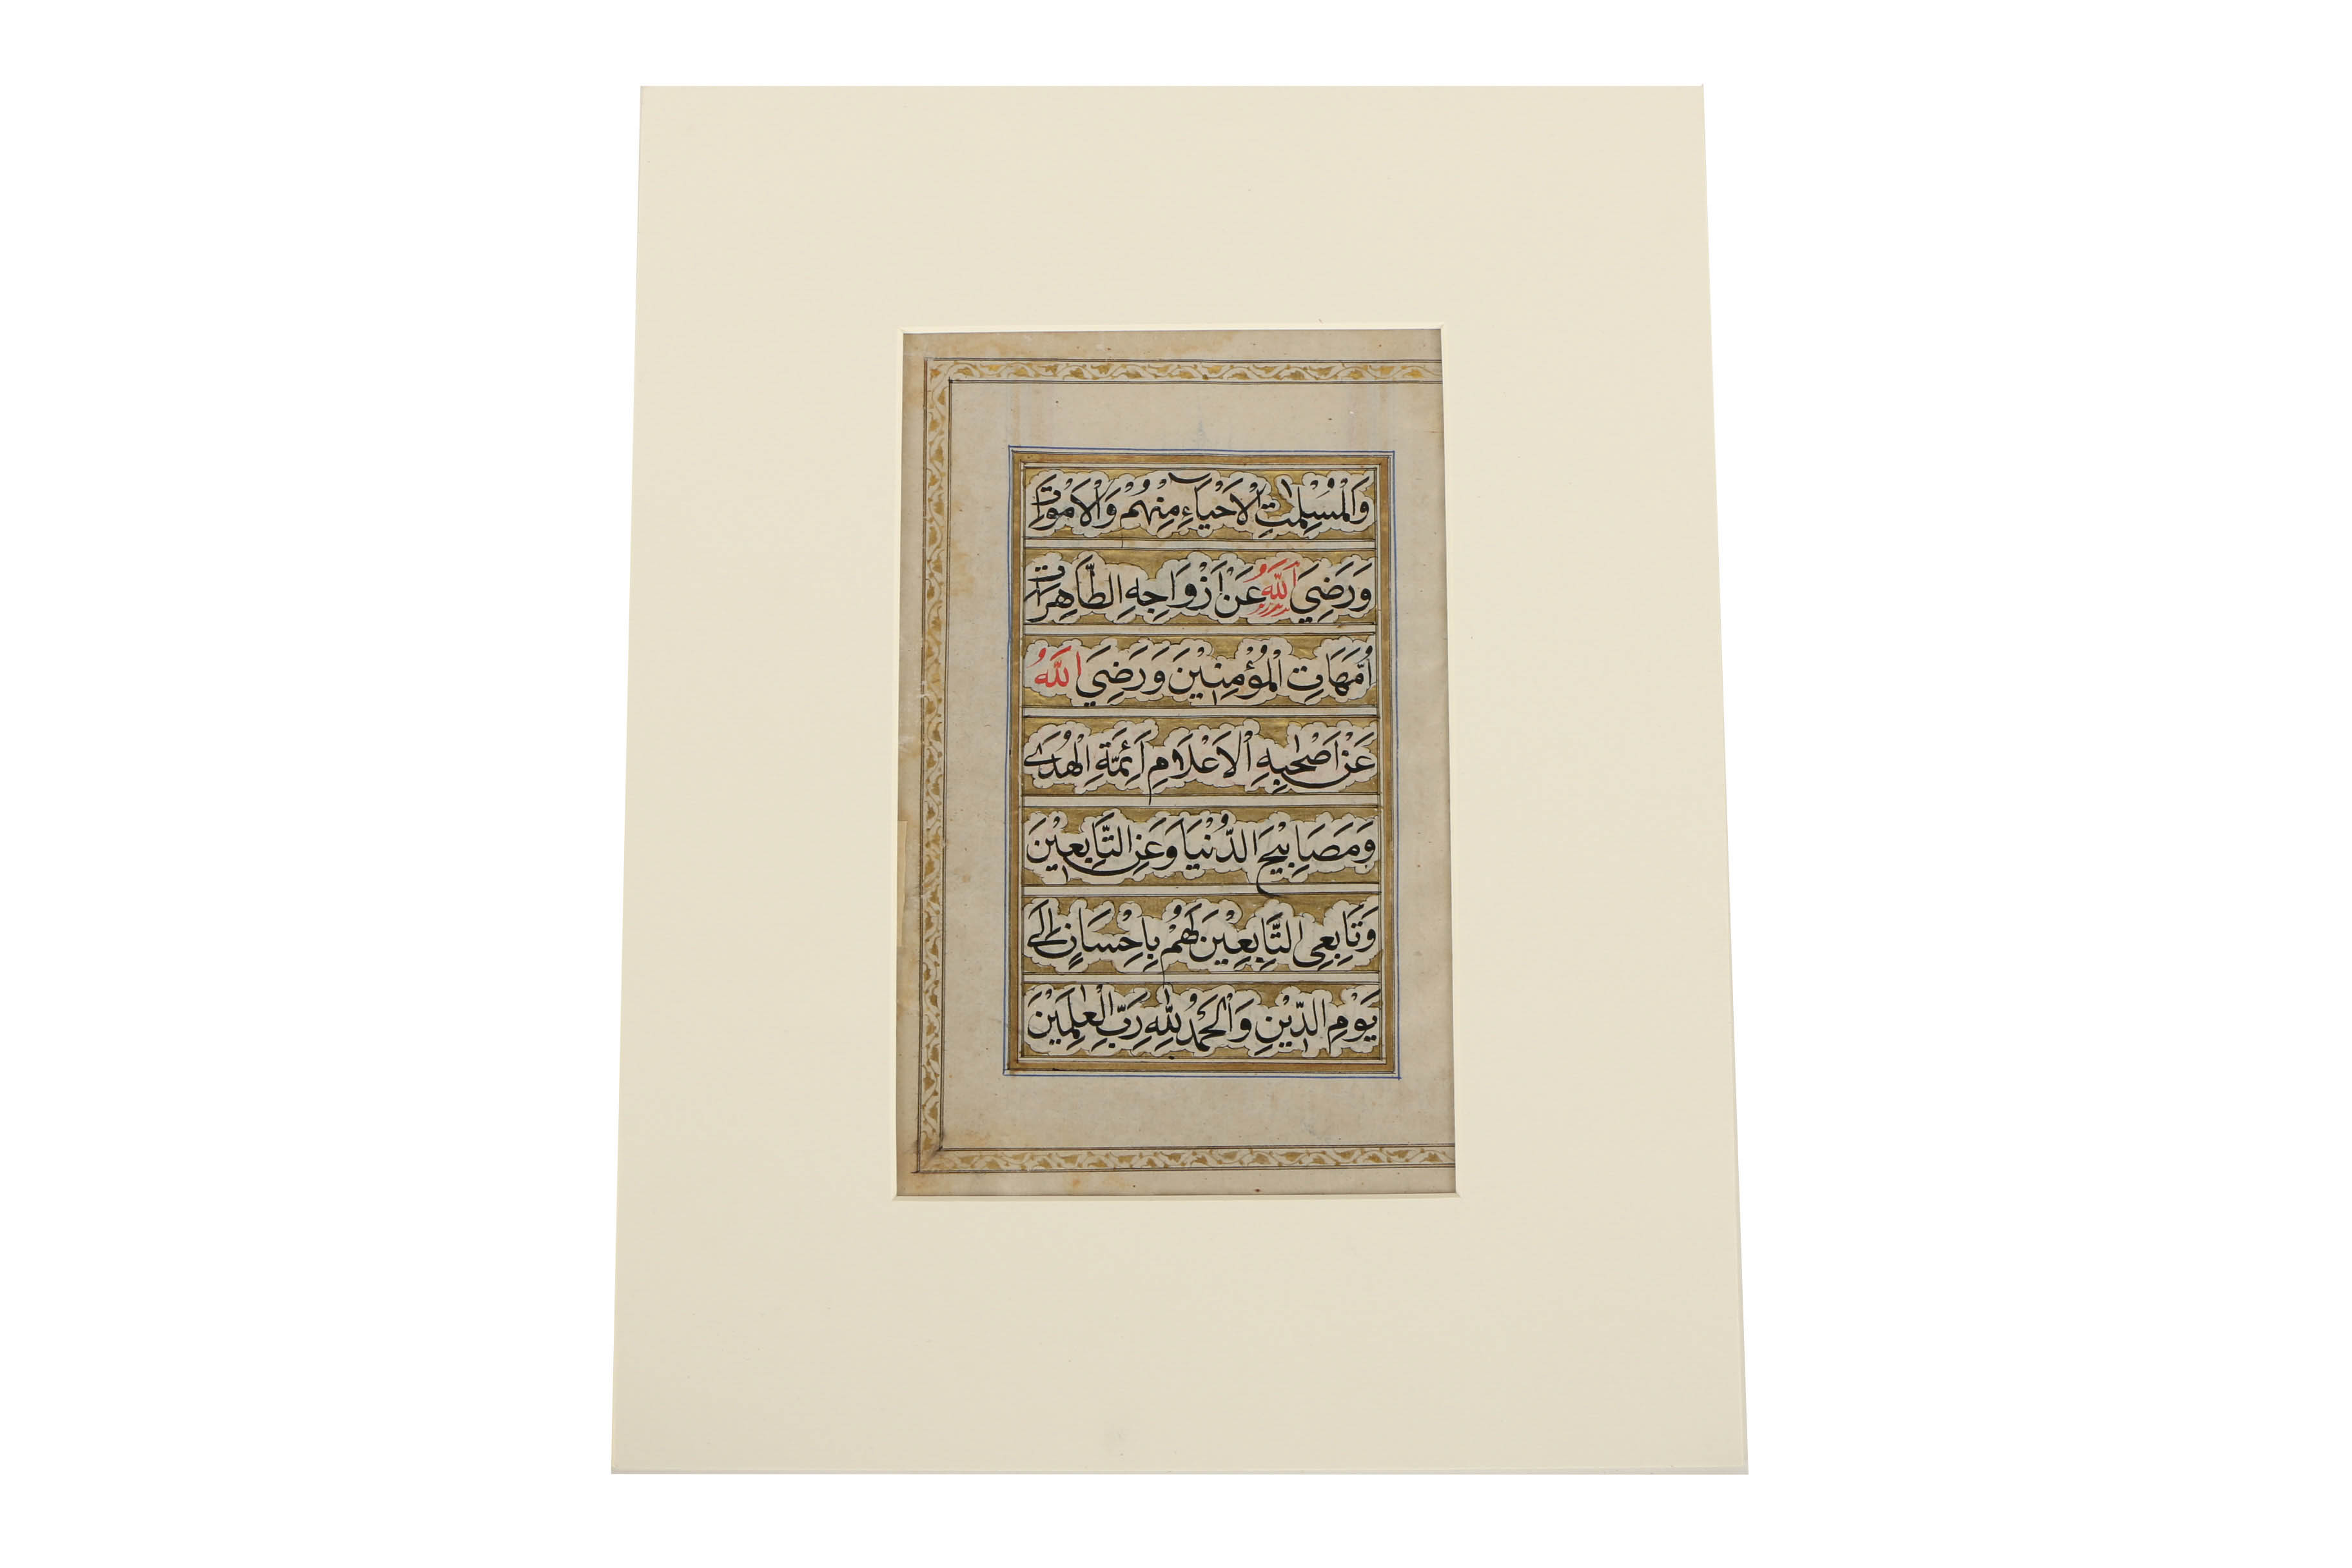 وَالْمُسْلِمٰتِ الْاَحْيَآءِ مِنْهُمْ وَالْاَمْوَاتِ
وَرَضِيَ اللّٰهُ عَنْ اَزْوَاجِهِ الطَّاهِرَاتِ
اُمَّهَاتِ الْمُؤْمِنِيْنَ وَرَضِيَ اللّٰهُ
عَنْ اَصْحٰبِهِ الْاَعْلَامِ اَئِمَّةِ الْهُدٰى
وَمَصَابِيْحِ الدُّنْيَا وَعَنِ التَّابِعِيْنَ
وَتَابِعِى التَّابِعِيْنَ لَهُمْ بِاِحْسَانٍ اِلٰى
يَوْمِ الدِّيْنِ وَالْحَمْدُ لِلّٰهِ رَبِّ الْعٰلَمِيْنَ